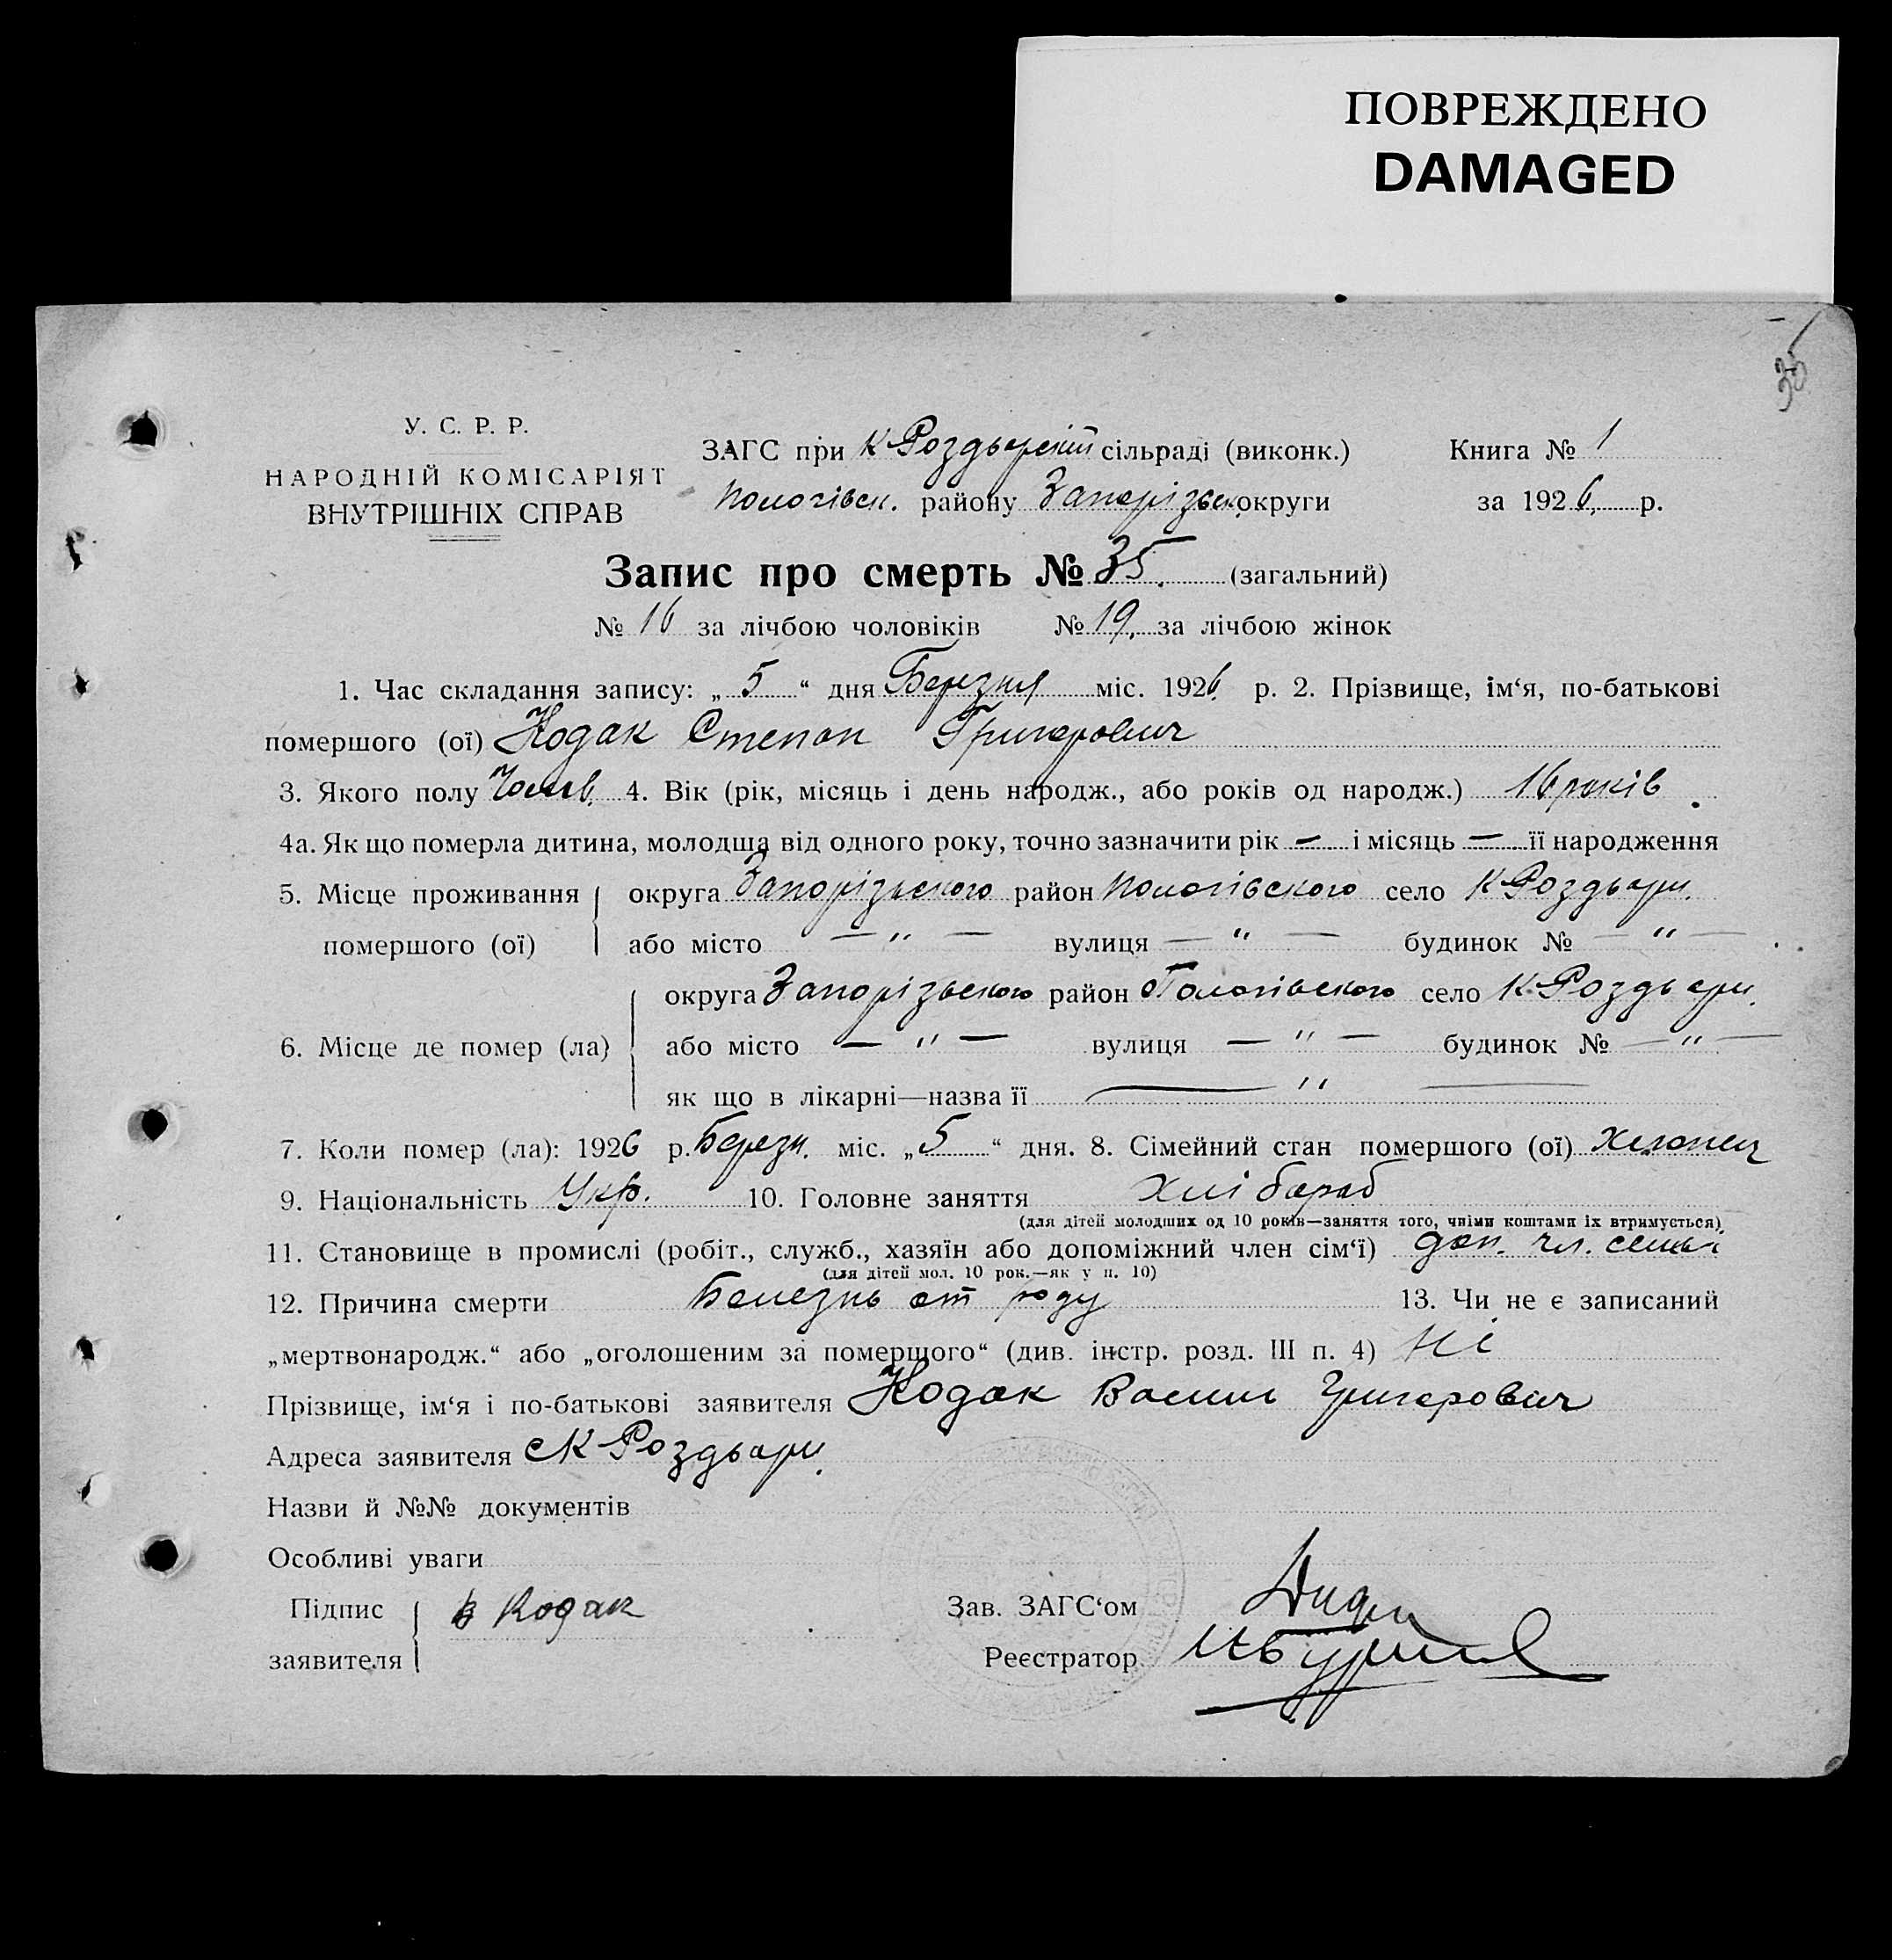 ПОВРЕЖДЕНО
DAMAGED
35
У. С. Р. Р.
НАРОДНІЙ КОМІСАРІЯТ
ВНУТРІШНІХ СПРАВ
ЗАГС при К Роздорскій сільраді (виконк.)
Пологівск. району Запорізьк округи
Книга № 1
за 1926, р.
Запис про смерть № 35. (загальний)
№ 16 за лічбою чоловіків № 19, за лічбою жінок
1. Час складання запису: „ 5 “ дня Березня міс. 1926 р. 2. Прізвище, ім‘я, по-батькові
помершого (ої) Кодак Степан Григорович
3. Якого полу Чолов. 4. Вік (рік, місяць і день народж., або років од народж.) 16 років
4а. Як що померла дитина, молодша від одного року, точно зазначити рік — і місяць — її народження
5. Місце проживання помершого (ої)
округа Запорізького район Пологівского село К Роздори.
або місто — " — вулиця — " — будинок № — " —
6. Місце де помер (ла)
округа Запорізького район Пологівского село К Роздори.
або місто — " — вулиця — " — будинок № — " —
як що в лікарні—назва її — " —
7. Коли помер (ла): 1926 р. Березн. міс. „ 5 “ дня. 8. Сімейний стан помершого (ої) Хлопець
9. Національність Укр. 10. Головне заняття Хлібороб
(для дітей молодших од 10 років—заняття того, чиїми коштами їх втримується)
11. Становище в промислі (робіт., служб., хазяїн або допоміжний член сім‘ї) доп. чл. семьї
(для дітей мол. 10 рок.—як у п. 10)
12. Причина смерти Болезнь от роду 13. Чи не є записаний
„мертвонародж.“ або „оголошеним за помершого“ (див. інстр. розд. III п. 4) Ні
Прізвище, ім‘я і по-батькові заявителя Кодак Василь Григорович
Адреса заявителя с К Роздори.
Назви й №№ документів
Особливі уваги
Підпис заявителя В Кодак
Зав. ЗАГС‘ом
Реєстратор